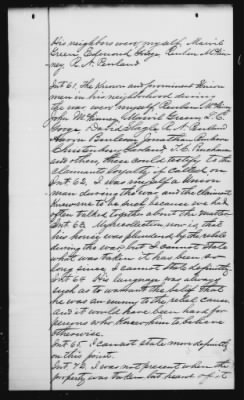 His neighbors were myself, Marvil
Green, Edmond Gorge, Reuben McKin
ney, R. N. Penland
Int. 61, The known and prominent Union
men in his neighborhood during
the war were myself, Reuben McKinney
John McKinney, Marvil Green, T. C.
Gorge, David Gorge, R. N. Penland
Aaron Penland, Jonathan
and others, these could testify to the
claimants loyalty if called on
Int. 62, I was myself a Union
man during the war, and the claimant
knew me to be such because we had
often talked together about the matter
Int. 63, My recollection now is that
his house was plundered by the rebels
during the war but I cannot state
what was taken it has been so
long since, I cannot state definitely
Int 64 His language was always
such as to warrant the belief that
he was an enemy to the rebel cause
and it would have been hard for
persons who knew him to believe
otherwise.
Int. 65, I cannot state more definitely
on this point.
Int. 72, I was not present when the
property was taken but heard of it